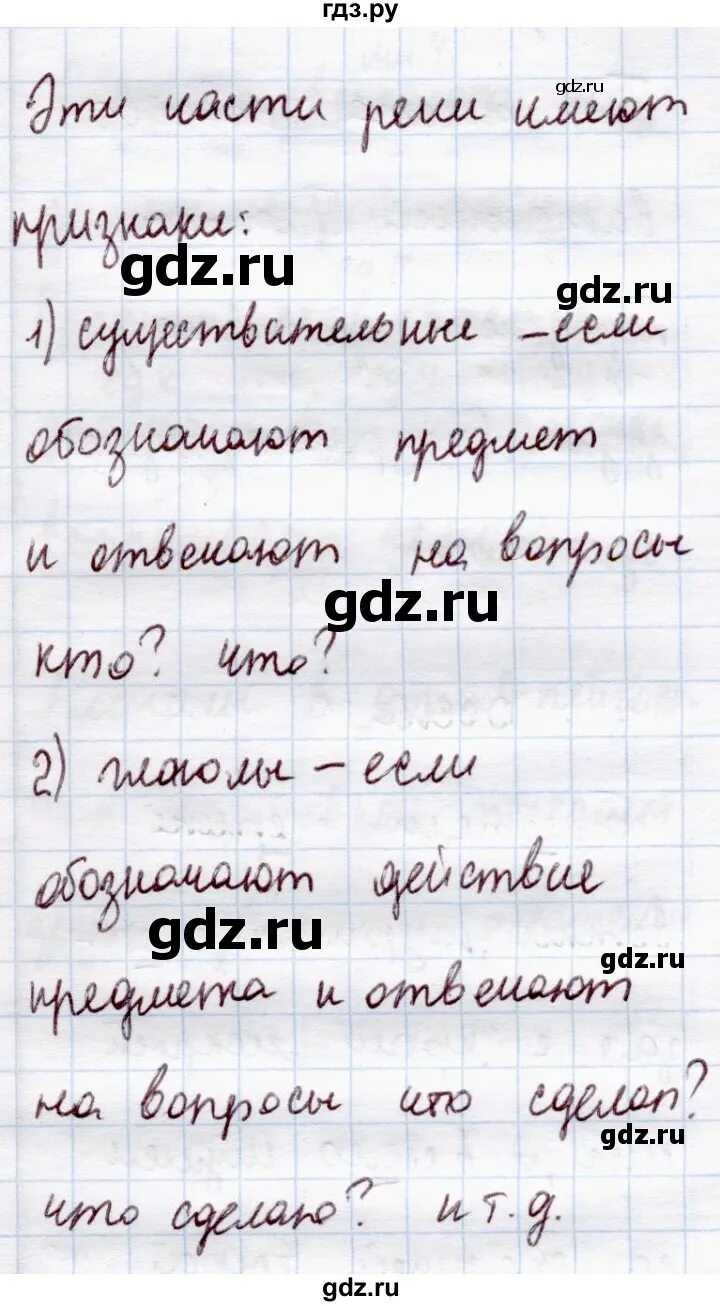 гдз.ру
gdz.ru
Эти части речи имеют
признаки:
gdz.ru
gdz.ru
1) существательные – если
обозначают предмет
и отвечают на вопросы
gdz.ru
кто? что?
2) глаголы – если
обозначают действие
gdz.ru
gdz.ru
предмета и отвечают
на вопросы что сделал?
gdz.ru
что сделано? и т.д.
gdz.ru